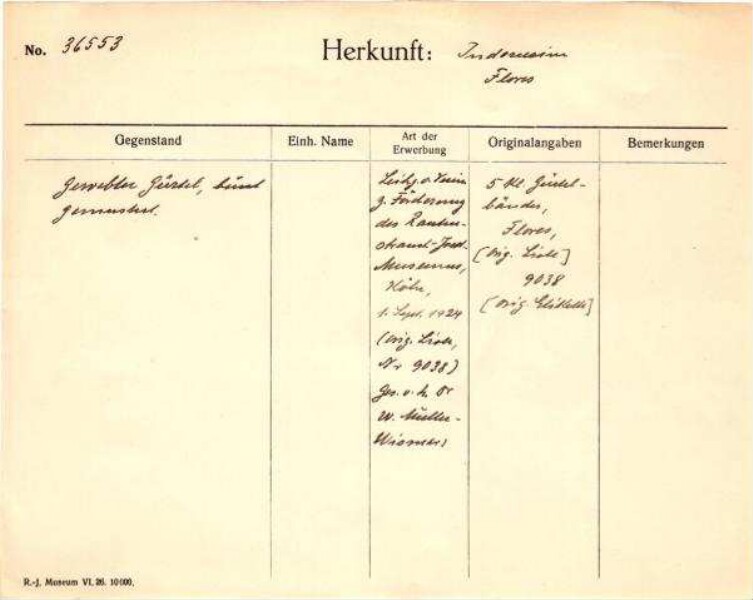 No. 36553
Herkunft: Indonesien
Flores
Gegenstand
Einh. Name
Art der
Erwerbung
Originalangaben
Bemerkungen
Gewebter Gürtel, bunt
gemustert.
Leihg. v. Verein
z. Förderung
des Rauten-
strauch-Joest-
Museums,
Köln,
1. Sept. 1924
(orig. Liste,
Nr 9038)
Ges. v. H. Dr
W. Müller-
Wismar)
5 Kl. Gürtel-
bänder,
Flores,
[orig. Liste]
9038
[orig. Etikette]
R.-J. Museum VI. 26. 10000.